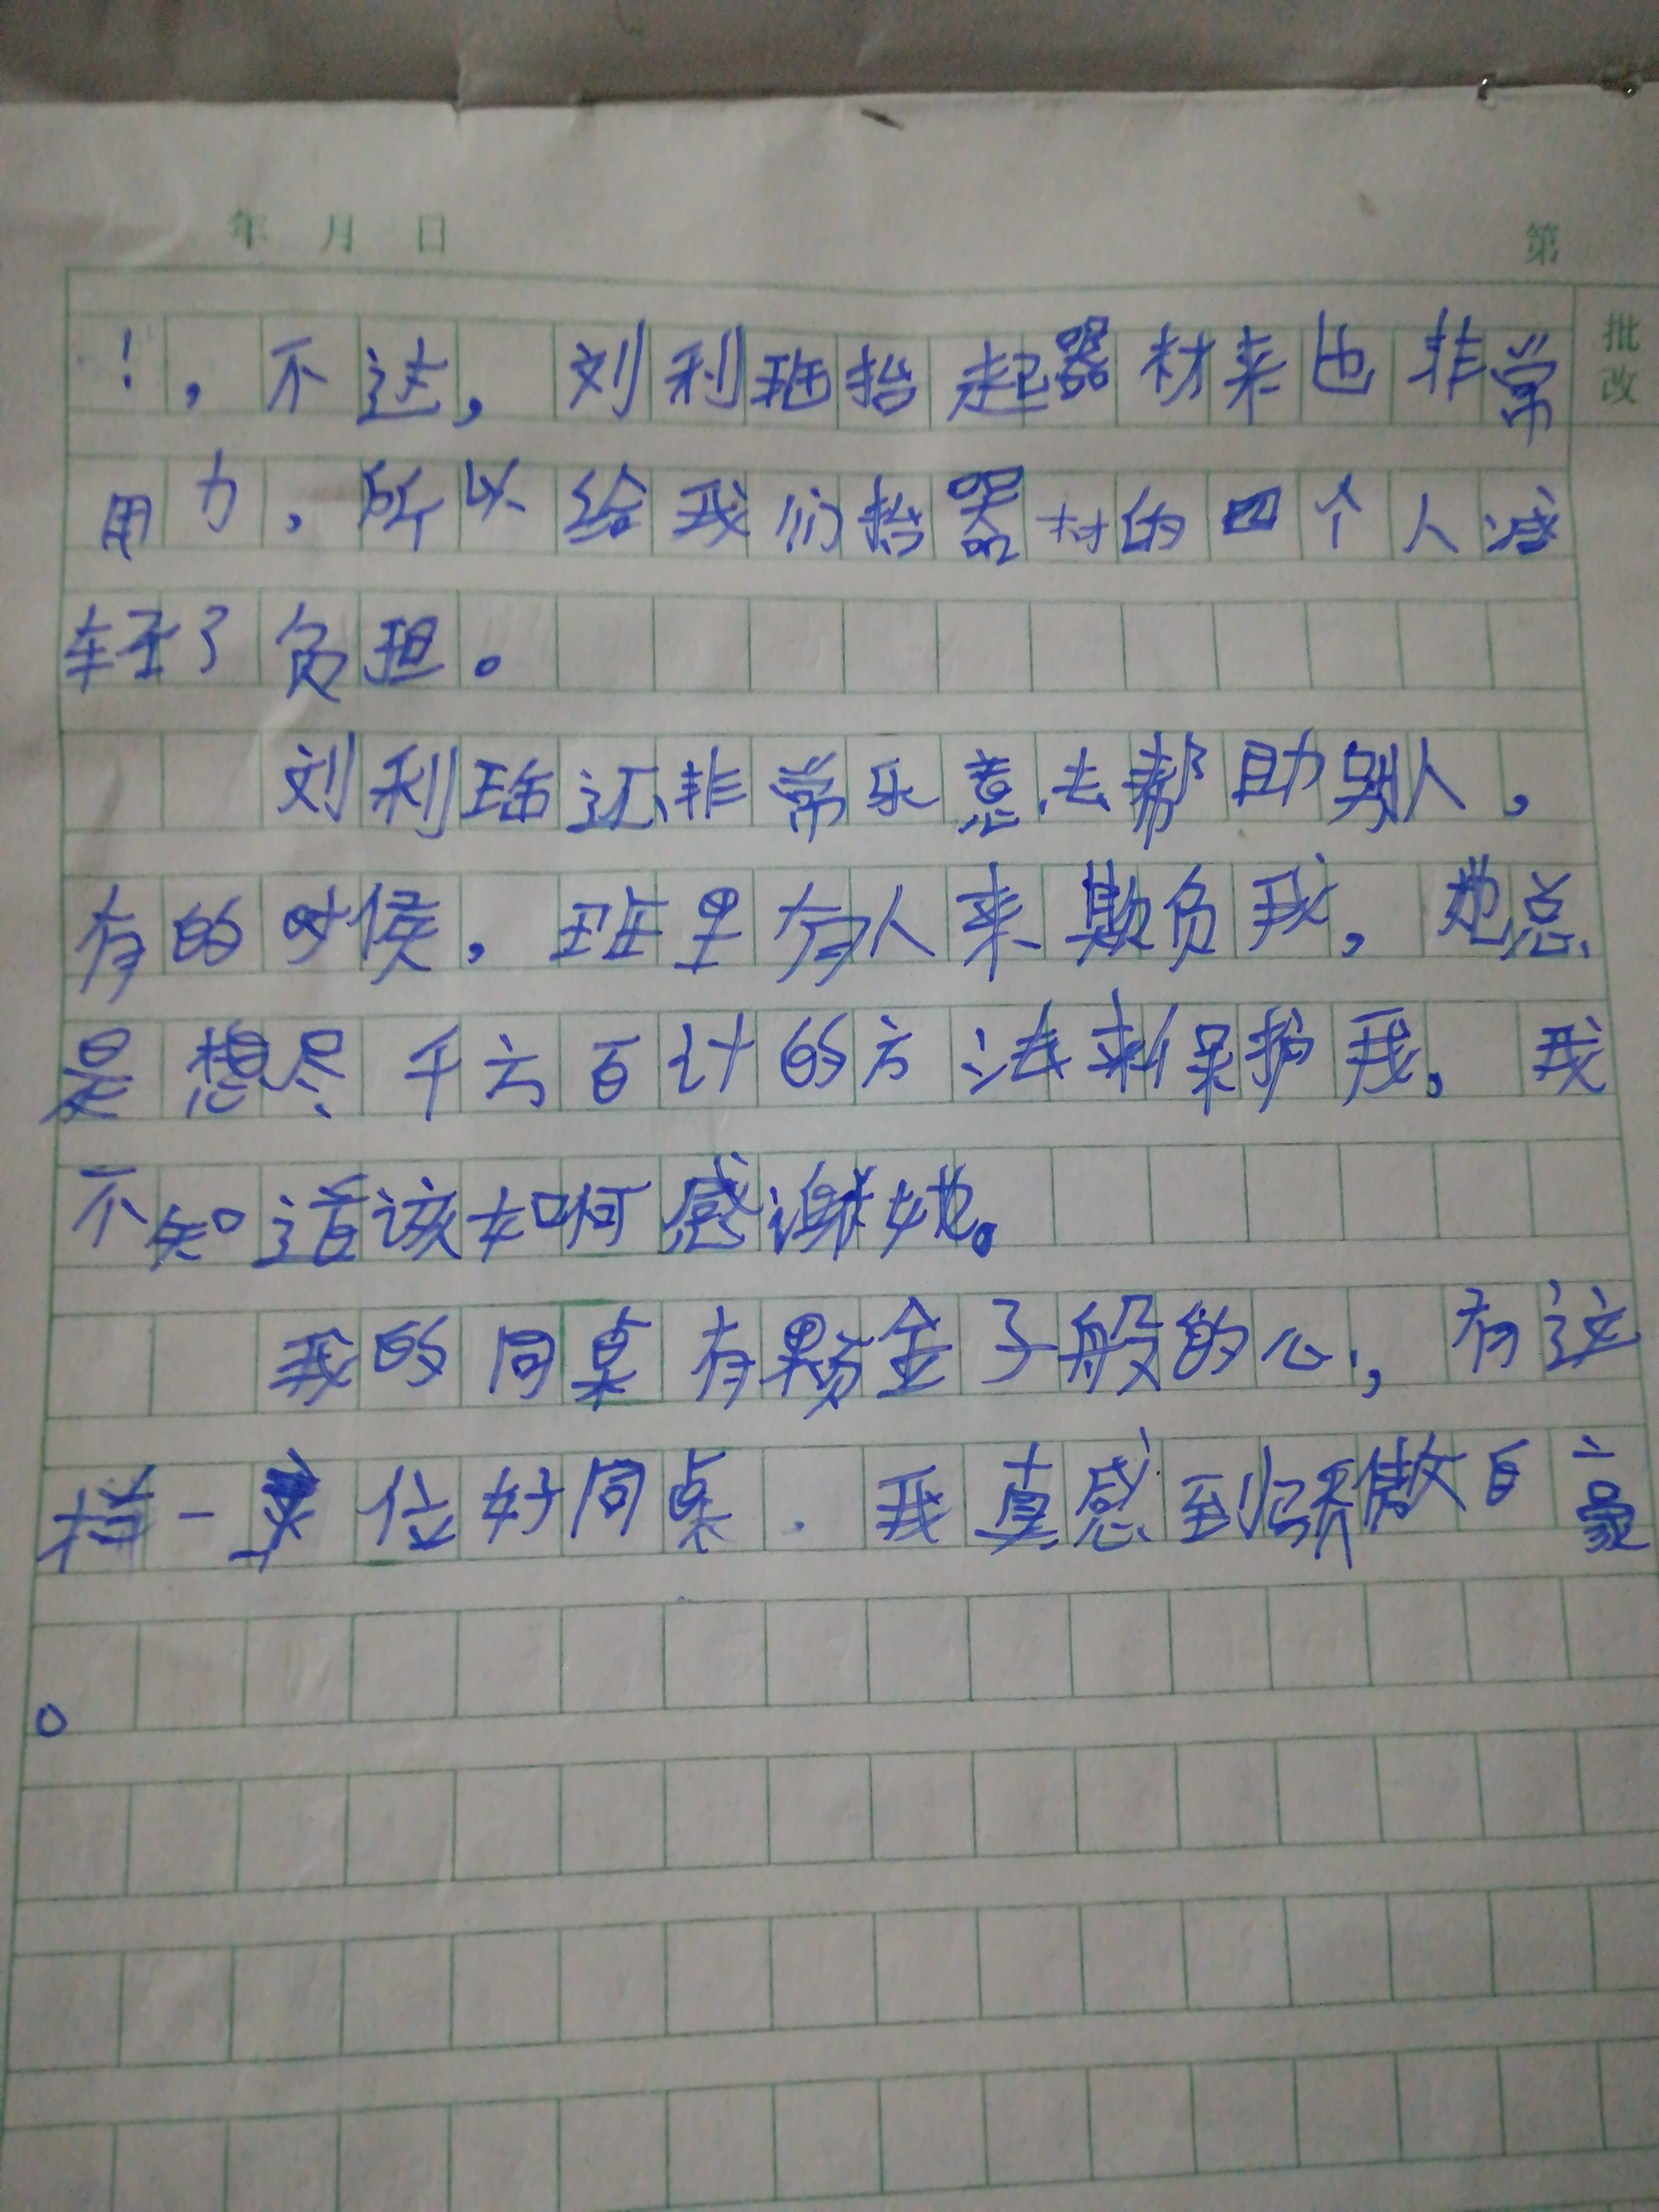 年 月 日 第
批改
！，不过，刘利瑶抬起器材来也非常
用力，所以给我们抬器材的四个人减
轻了负担。
刘利瑶还非常乐意去帮助别人，
有的时候，班里有人来欺负我，她总
是想尽千方百计的方法来保护我。我
不知道该如何感谢她。
我的同桌有颗金子般的心，有这
样一位好同桌.我真感到骄傲自豪
。